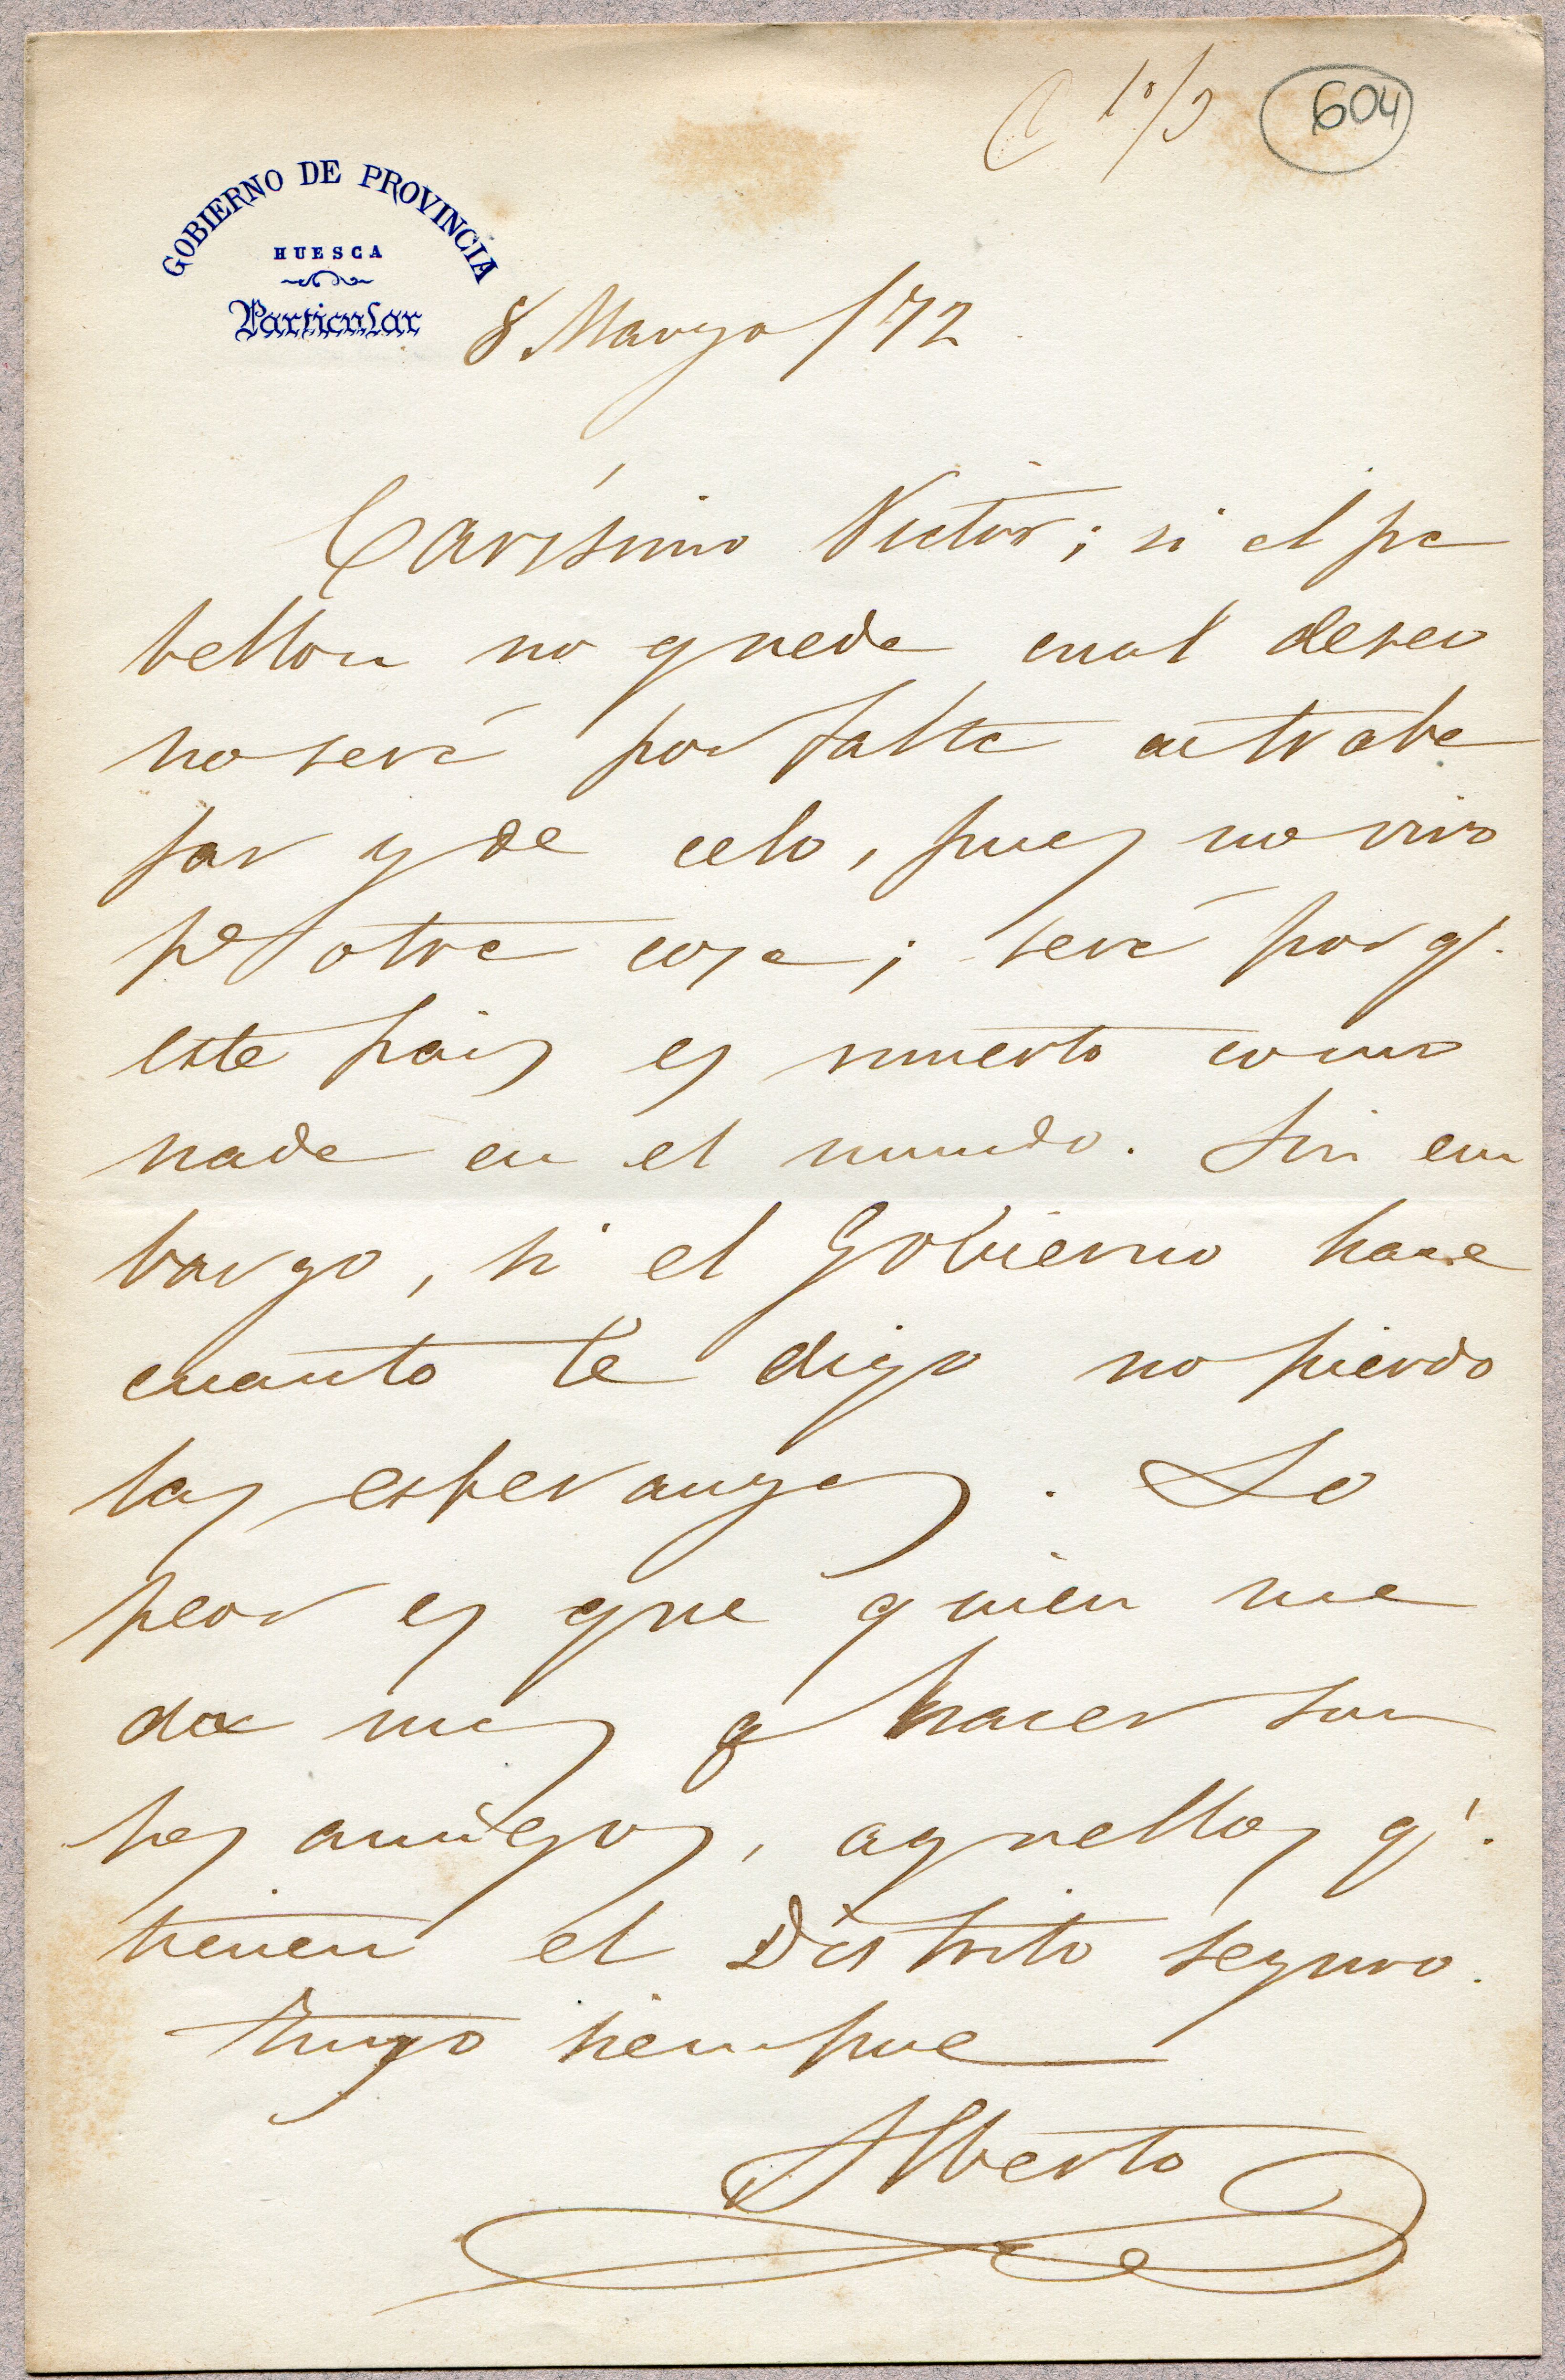 C 10/3 604
GOBIERNO DE PROVINCIA
HUESCA
Particular
8 Marzo/72
Carísimo Victor; si el pa
bellon no queda cual deseo
no será por falta de traba
jar y de celo, pues no vivo
pª otra cosa; será por q.
este pais es muerto como
nada en el mundo. Sin em
bargo, si el Gobierno hace
cuanto te digo no pierdo
las esperanzas. Lo
peor es que quien me
da mas q hacer son
los amigos, aquellos q.
tienen el Distrito seguro.
Tuyo siempre
Alberto